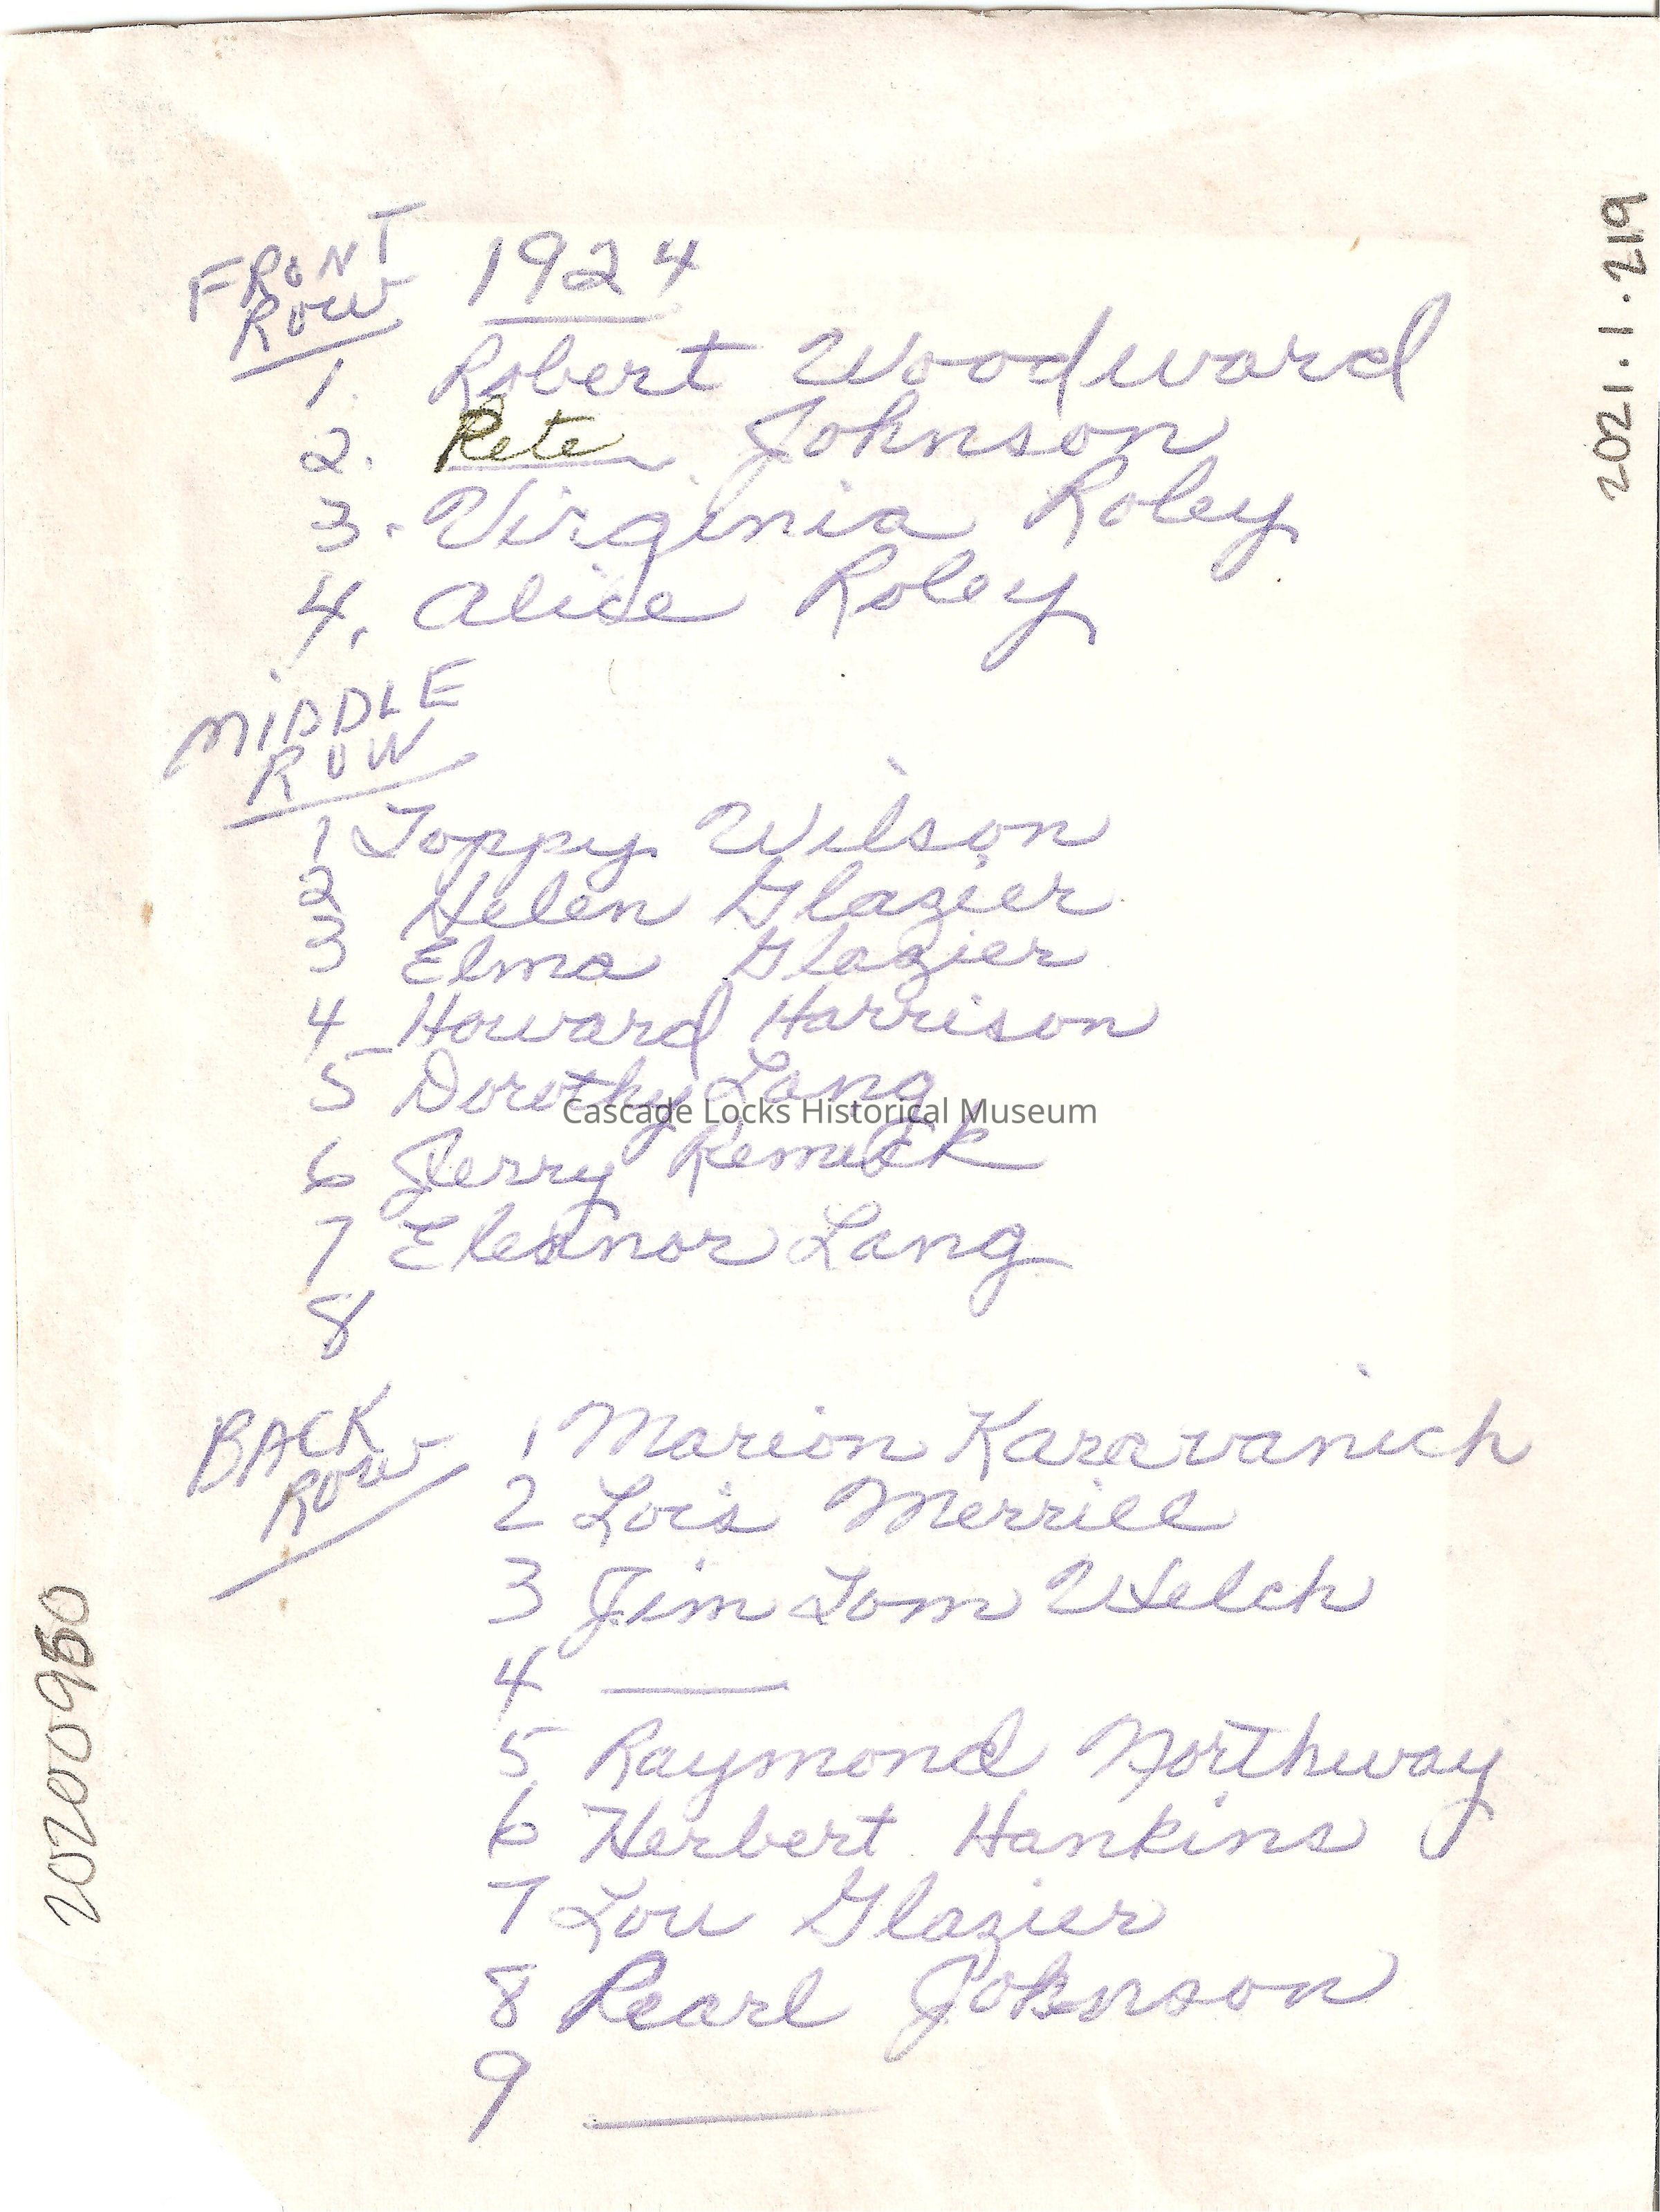 FRONT ROW
1924
1. Robert Woodward
2. Pete Johnson
3. Virginia Roley
4. Alice Roley
MIDDLE ROW
1 Toppy Wilson
2 Helen Glazier
3 Elma Glazier
4 Howard Harrison
5 Dorothy Lang
Cascade Locks Historical Museum
6 Jerry Remick
7 Eleanor Lang
8
BACK ROW
1 Marion Karavanich
2 Lois Merrill
3 Jim Tom Welch
4 ——
5 Raymond Northway
6 Herbert Hankins
7 Lou Glazier
8 Pearl Johnson
9 ——
20200950
2021.1.219